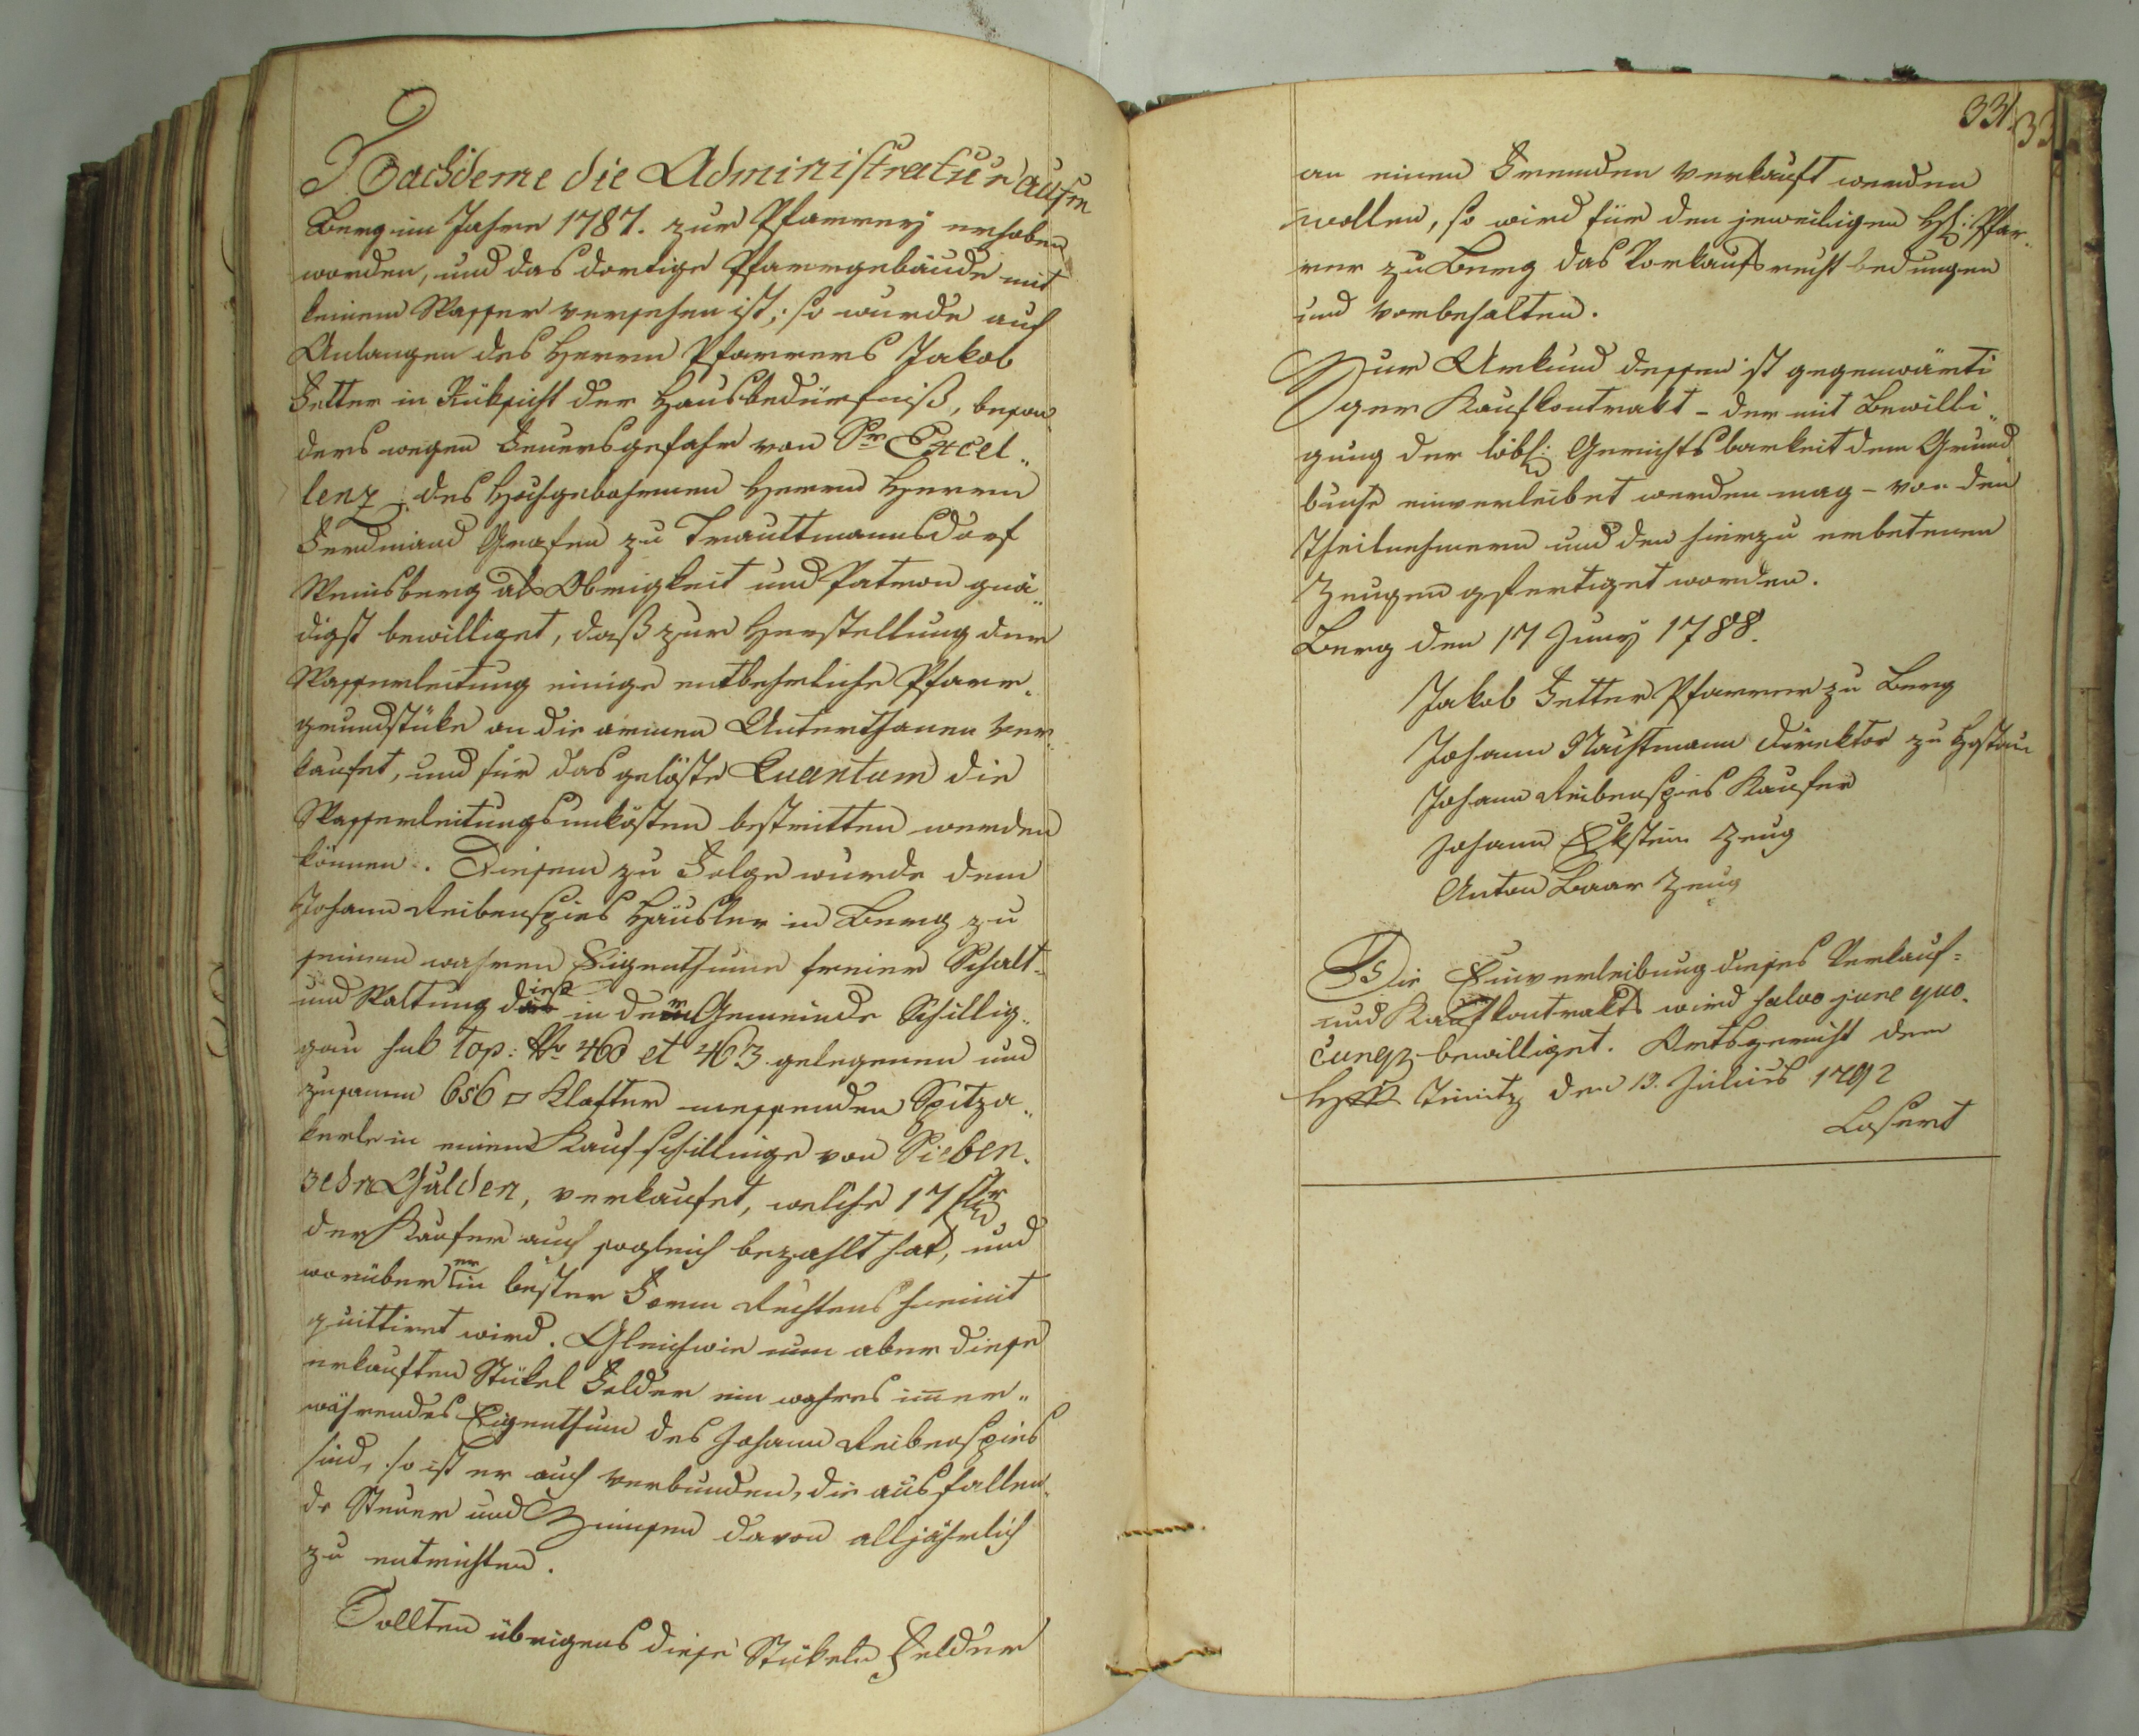 Nachdeme die Administratur aufm
Berg im Jahre 1787. zur Pfarrey erhoben
worden, und das dortige Pfarrgebäude mit
keinem Wasser versehen ist; so wurde auf
Anlangen des Herrn Pfarrers Jakob
Fetter in Rüksicht der Hausbedürfniß, beson
ders wegen Feuersgefahr von Sr Excel„
lenz des Hochgebohrnen Herrn Herrn
Ferdinand Grafen zu Trauttmannsdorf
Weinsberg als Obrigkeit und Patron gnä„
digst bewilliget, daß zur Herstellung der
Wasserleitung einige entbehrliche Pfarr„
grundstüke an die armen Unterthanen ver„
kaufet, und für das gelöste Quantum die
Wasserleitungsunkösten bestritten werden
können. Diesem zu Folge wurde dem
Johann Reibenspies Häusler in Berg zu
seinem wahren Eigenthume freier Schalt-
und Waltung dies in der Gemeinde Schillig„
gau sub top: Nr 460 et 463 gelegenen und
zusamm 656 □ Klafter messenden Spitza„
kerl in einem Kaufschillinge von Sieben„
zehn Gulden, verkaufet, welche 17 fl
der Kaufer auch sogleich bezahlt hat, und
worüber er in bester Form Rechtens hiemit
quittiret wird. Gleichwie nun aber diese
erkauften Stükel Felder ein wahres imer„
währendes Eigenthum des Johann Reibenspies
sind, so ist er auch verbunden, die ausfallen„
de Steuer und Zinnsen davon alljährlich
zu entrichten.
Sollten übrigens diese Stükeln Felder
331
33
an einen Fremden verkauft werden
wollen, so wird für den jeweiligen H: Pfar„
rer zu Berg das Vorkaufsrecht bedungen
und vorbehalten.
Zur Urkund dessen ist gegenwärti
ger Kaufkontrakt - der mit Bewilli„
gung der löbl: Gerichtsbarkeit dem Grund
buche einverleibet werden mag - von den
Theilnehmern und den hierzu erbetenen
Zeugen gefertiget worden.
Berg den 17 Juny 1788.
Jakob Fetter Pfarrer zu Berg
Johann Nachtmann Direktor zu Hostau
Johann Reibenspies Kaufer
Johann Ekstein Zeug
Anton Baar Zeug
Die Einverleibung dieses Verkauf=
und Kaufkontrakts wird salvo jure quo„
cunq bewilliget. Amtsgericht der
den 13. Julius 1792
Losert